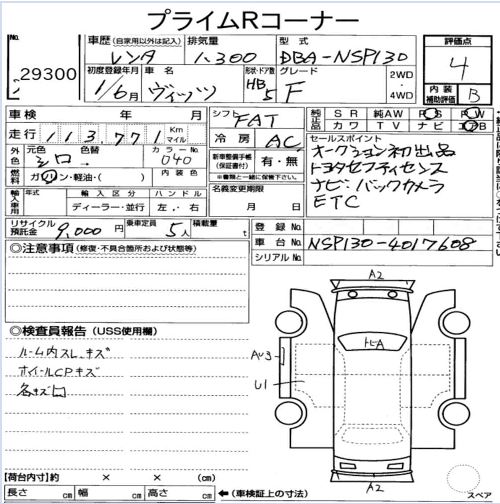 プライムRコーナー
No. 29300
車歴(自家用以外は記入) 排気量 型式 評価点
レンタ 1,300 DBA-NSP130 4
初度登録年月 車名 形状・ドア数 グレード 2WD・4WD 内装補助評価
1/6月 ヴィッツ HB 5 F B
車検 年 月 シフト FAT 純正品 SR 純AW PS PW
走行 113,771 Km マイル 冷房 AC カワ TV ナビ エアB
外色 元色 色替 カラーNo. 新車整備手帳(保証書付) 有・無 セールスポイント
シロ 040 *書類と一緒に保管下さい。 オークション初出品
燃料 ガソリン・軽油・( ) 内装色 名義変更期限 トヨタセフティセンス
輸入車用 年式 輸入区分 ハンドル 月 日 ナビ バックカメラ
ディーラー・並行 左・右 ETC
リサイクル預託金 9,000円 乗車定員 5人 積載量 t 登録No.
◎注意事項(修復・不具合箇所および状態等) 車台No. NSP130-4017608
シリアルNo.
A2
◎検査員報告(USS使用欄)
トビA
ルーム内スレ、キズ
AU3
ホイールCPキズ
U1
各キズ
A2
【荷台内寸】約 × × (cm)
長さ cm 幅 cm 高さ cm ←(車検証上の寸法)
スペア